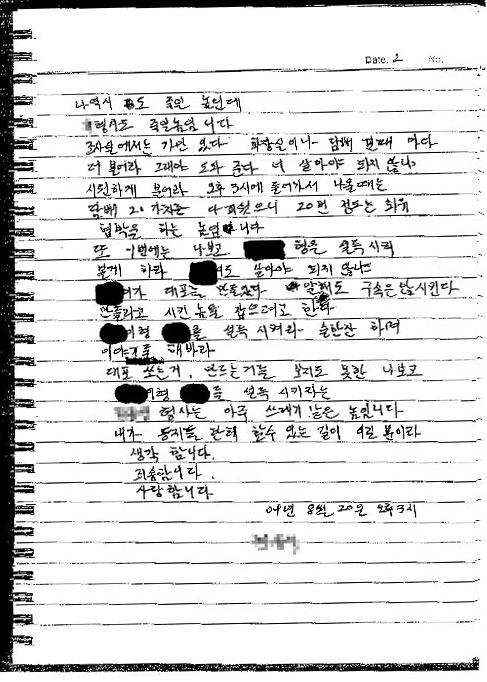 Date. 2 No.
나역시 도 죽일 놈인데
형사도 죽일놈입니다
조사실에서는 가만 있다 화장실이나 담배 필때 마다
더 불어라 그래야 도와 준다 너 살아야 되지 않냐
시원하게 불어라 오후 3시에 들어가서 나올때는
담배 20가치는 다 피웠으니 20번 정도는 회유
협박을 하는 놈입니다
또 이번에는 나보고 형을 설득 시켜
불게 하라 도 살아야 되지 않냐
가 대포를 만들었다 말해도 구속은 안시킨다
만들라고 시킨 놈을 잡으려고 한다
형 를 설득 시켜라 술한잔 하며
이야기를 해봐라
대포 쏘는거, 만드는거를 보지도 못한 나보고
형 를 설득 시키라는
형사는 아주 쓰레기 같은 놈입니다
내가 동지들 한테 할수 있는 길이 이길 뿐이라
생각 합니다.
죄송합니다.
사랑합니다
09년 8월 20일 오후 3시